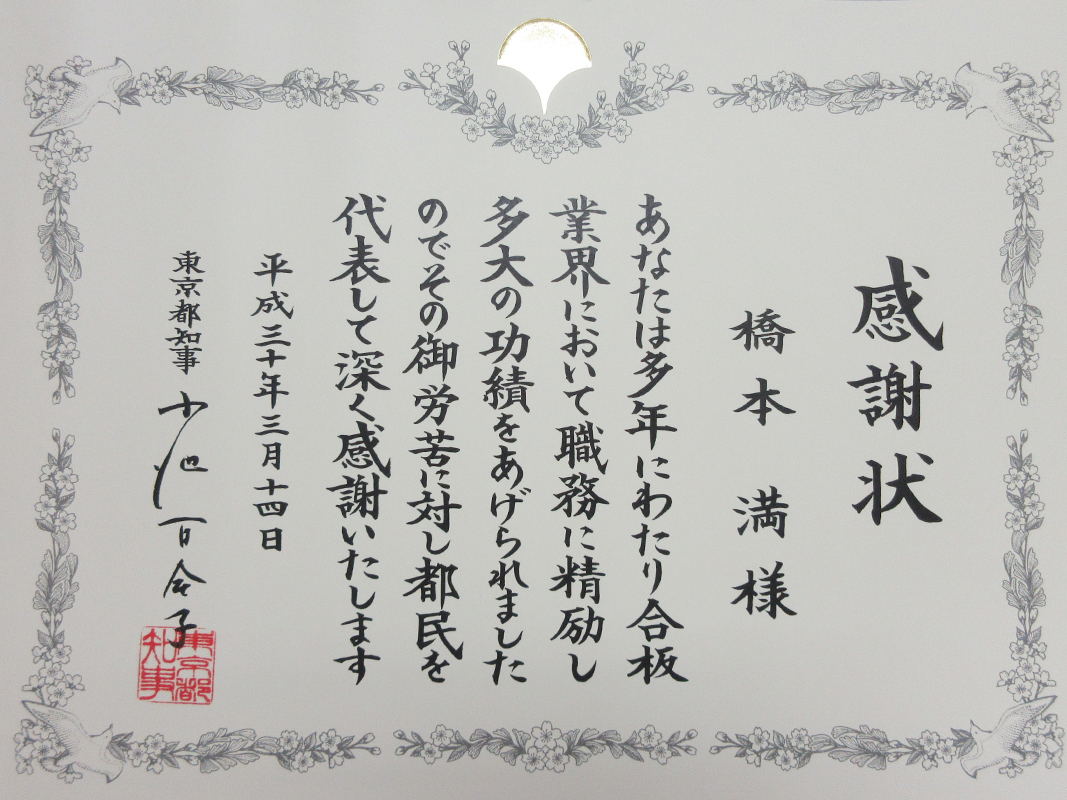 感謝状
橋本満様
あなたは多年にわたり合板
業界において職務に精励し
多大の功績をあげられました
のでその御労苦に対し都民を
代表して深く感謝いたします
平成三十年三月十四日
東京都知事 小池百合子
東京都
知事